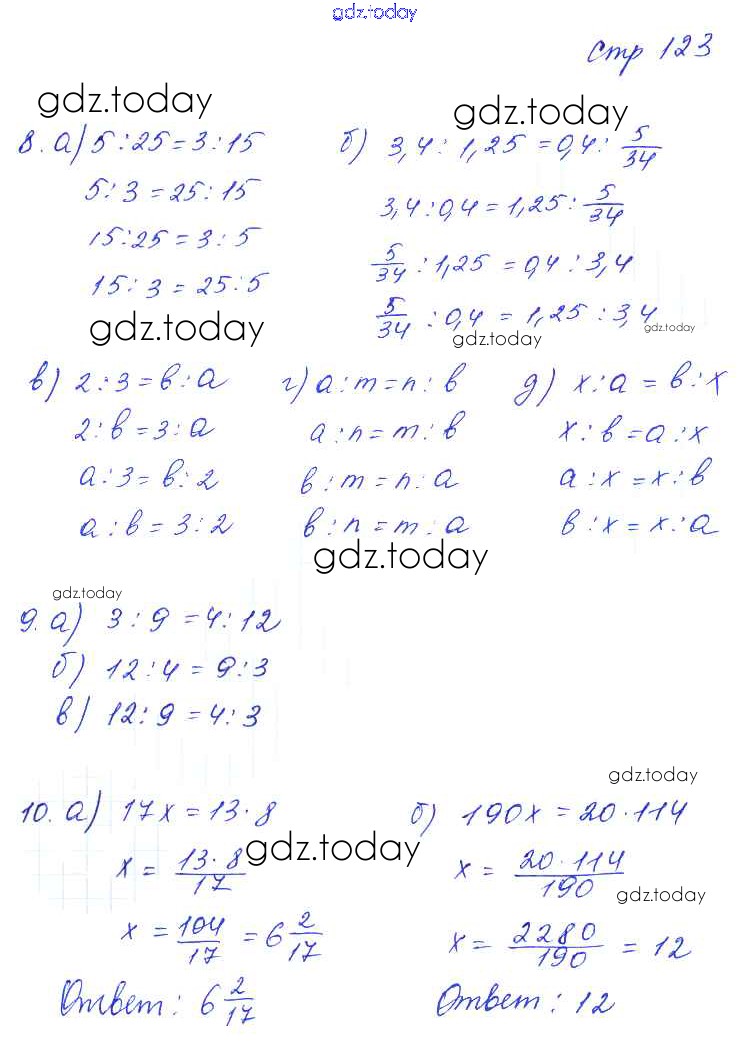 gdz.today
стр 123
gdz.today gdz.today
8. а) 5 : 25 = 3 : 15
5 : 3 = 25 : 15
15 : 25 = 3 : 5
15 : 3 = 25 : 5
б) 3,4 : 1,25 = 0,4 : 5/34
3,4 : 0,4 = 1,25 : 5/34
5/34 : 1,25 = 0,4 : 3,4
5/34 : 0,4 = 1,25 : 3,4
gdz.today gdz.today gdz.today
в) 2 : 3 = в : а
2 : в = 3 : а
а : 3 = в : 2
а : в = 3 : 2
г) а : m = n : в
а : n = m : в
в : m = n : а
в : n = m : а
д) х : а = в : х
х : в = а : х
а : х = х : в
в : х = х : а
gdz.today
gdz.today
9. а) 3 : 9 = 4 : 12
б) 12 : 4 = 9 : 3
в) 12 : 9 = 4 : 3
gdz.today
10. а) 17х = 13 · 8
х = 13 · 8/17
х = 104/17 = 6 2/17
Ответ : 6 2/17
gdz.today
б) 190х = 20 · 114
х = 20 · 114/190
gdz.today
х = 2280/190 = 12
Ответ : 12